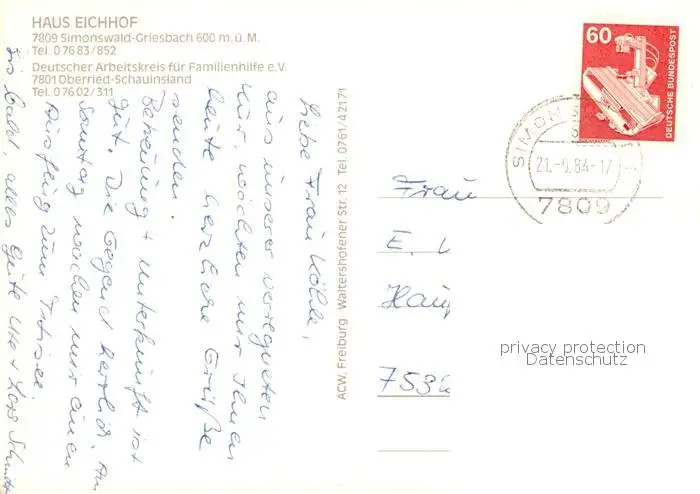 HAUS EICHHOF
7809 Simonswald-Griesbach 600 m. ü. M.
Tel. 0 76 83 / 852
Deutscher Arbeitskreis für Familienhilfe e.V.
7801 Oberried-Schauinsland
Tel. 0 76 02 / 311
Liebe Frau Köhle,
aus unserer verregneten
Kur, möchten wir Ihnen
heute herzliche Grüße
senden.
Betreuung + Unterkunft ist
gut. Die Gegend herrlich. Am
Sonntag machen wir einen
Ausflug zum Titisee.
Bis bald, alles Gute
ACW, Freiburg Waltershofener Str. 12 Tel. 0761/42171
60
DEUTSCHE BUNDESPOST
SIMON
21.-9.84-17
7809
Frau
E.
Hau
753
privacy protection
Datenschutz